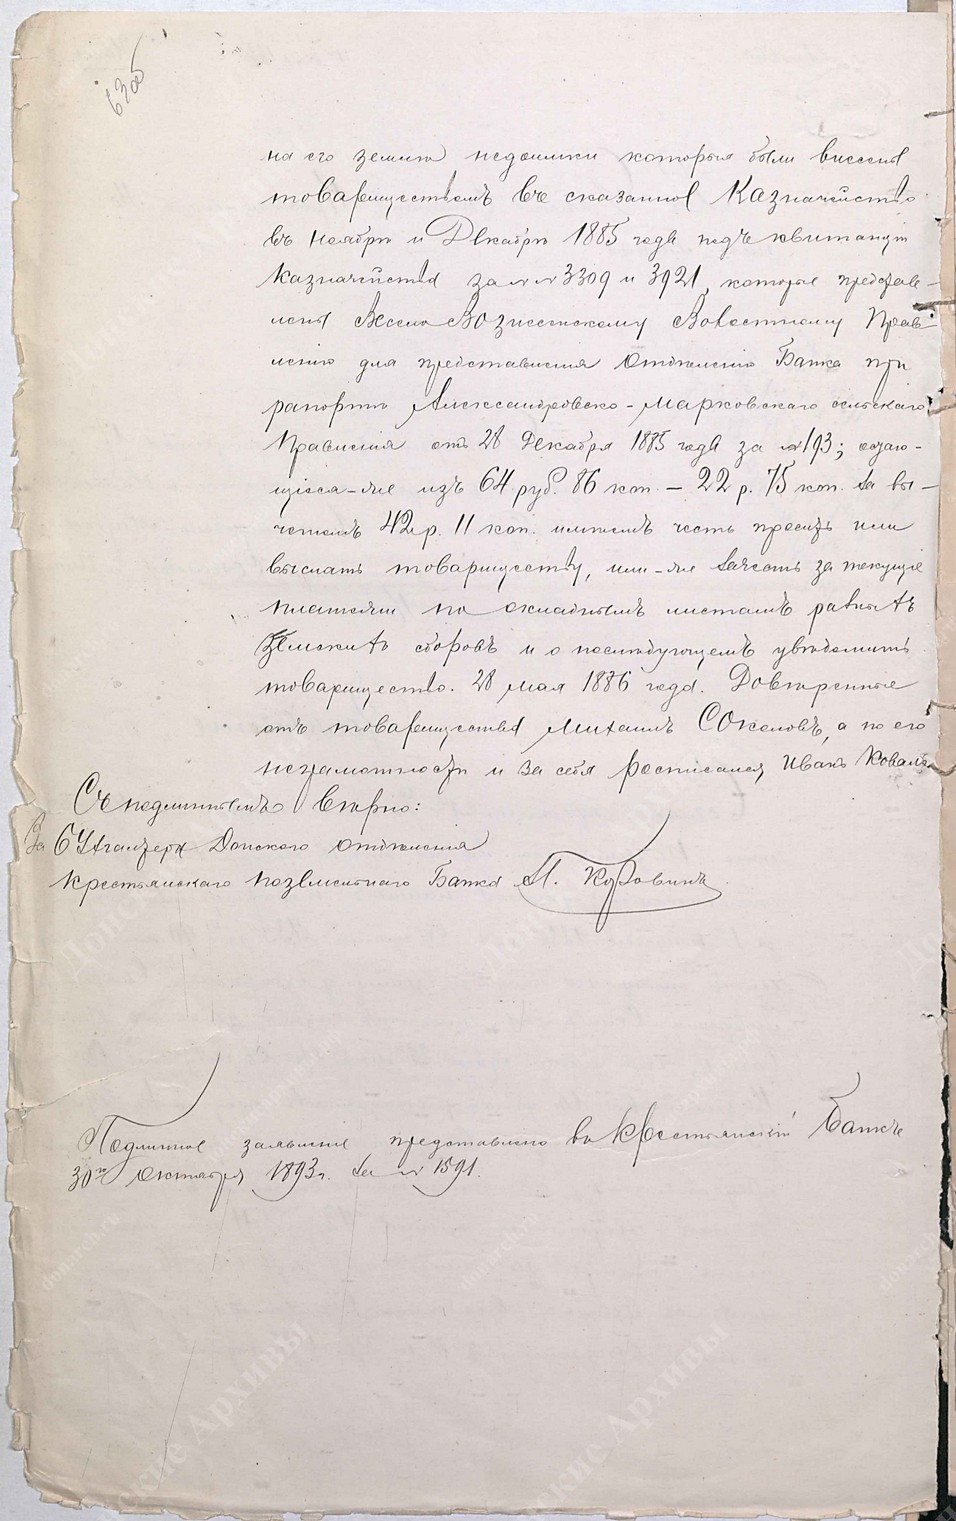 63 об
на его землю недоимки которыя были внесены
товариществомъ въ сказанное Казначейство
въ Ноябрѣ и Декабрѣ 1885 года подъ квитанціи
Казначейства за №№ 3309 и 3921, которые представ-
лены Весело Вознесенскому Волостному Прав-
ленію для представленія Отдѣленію Банка при
рапортѣ Александровско-Марковскаго сельскаго
Правленія отъ 28 Декабря 1885 года за №193; остаю-
щіеся-же изъ 64 руб. 86 коп. – 22 р. 75 коп. за вы-
четомъ 42 р. 11 коп. имѣемъ честь просить или
выслать товариществу, или-же зачесть за текущіе
платежи по окладнымъ листамъ
Земскихъ сборовъ и о послѣдующемъ увѣдомить
товарищество. 28 мая 1886 года. Довѣренные
отъ товарищества Михаилъ Соколовъ, а по его
неграмотности и за себя росписался Иванъ Коваль
Съ подлиннымъ вѣрно:
За Бухгалтера Донского Отдѣленія
Крестьянскаго Поземельнаго Банка П.
Подлинное заявленіе представлено въ Крестьянскій Банкъ
30го Октября 1893 г. за № 1591.